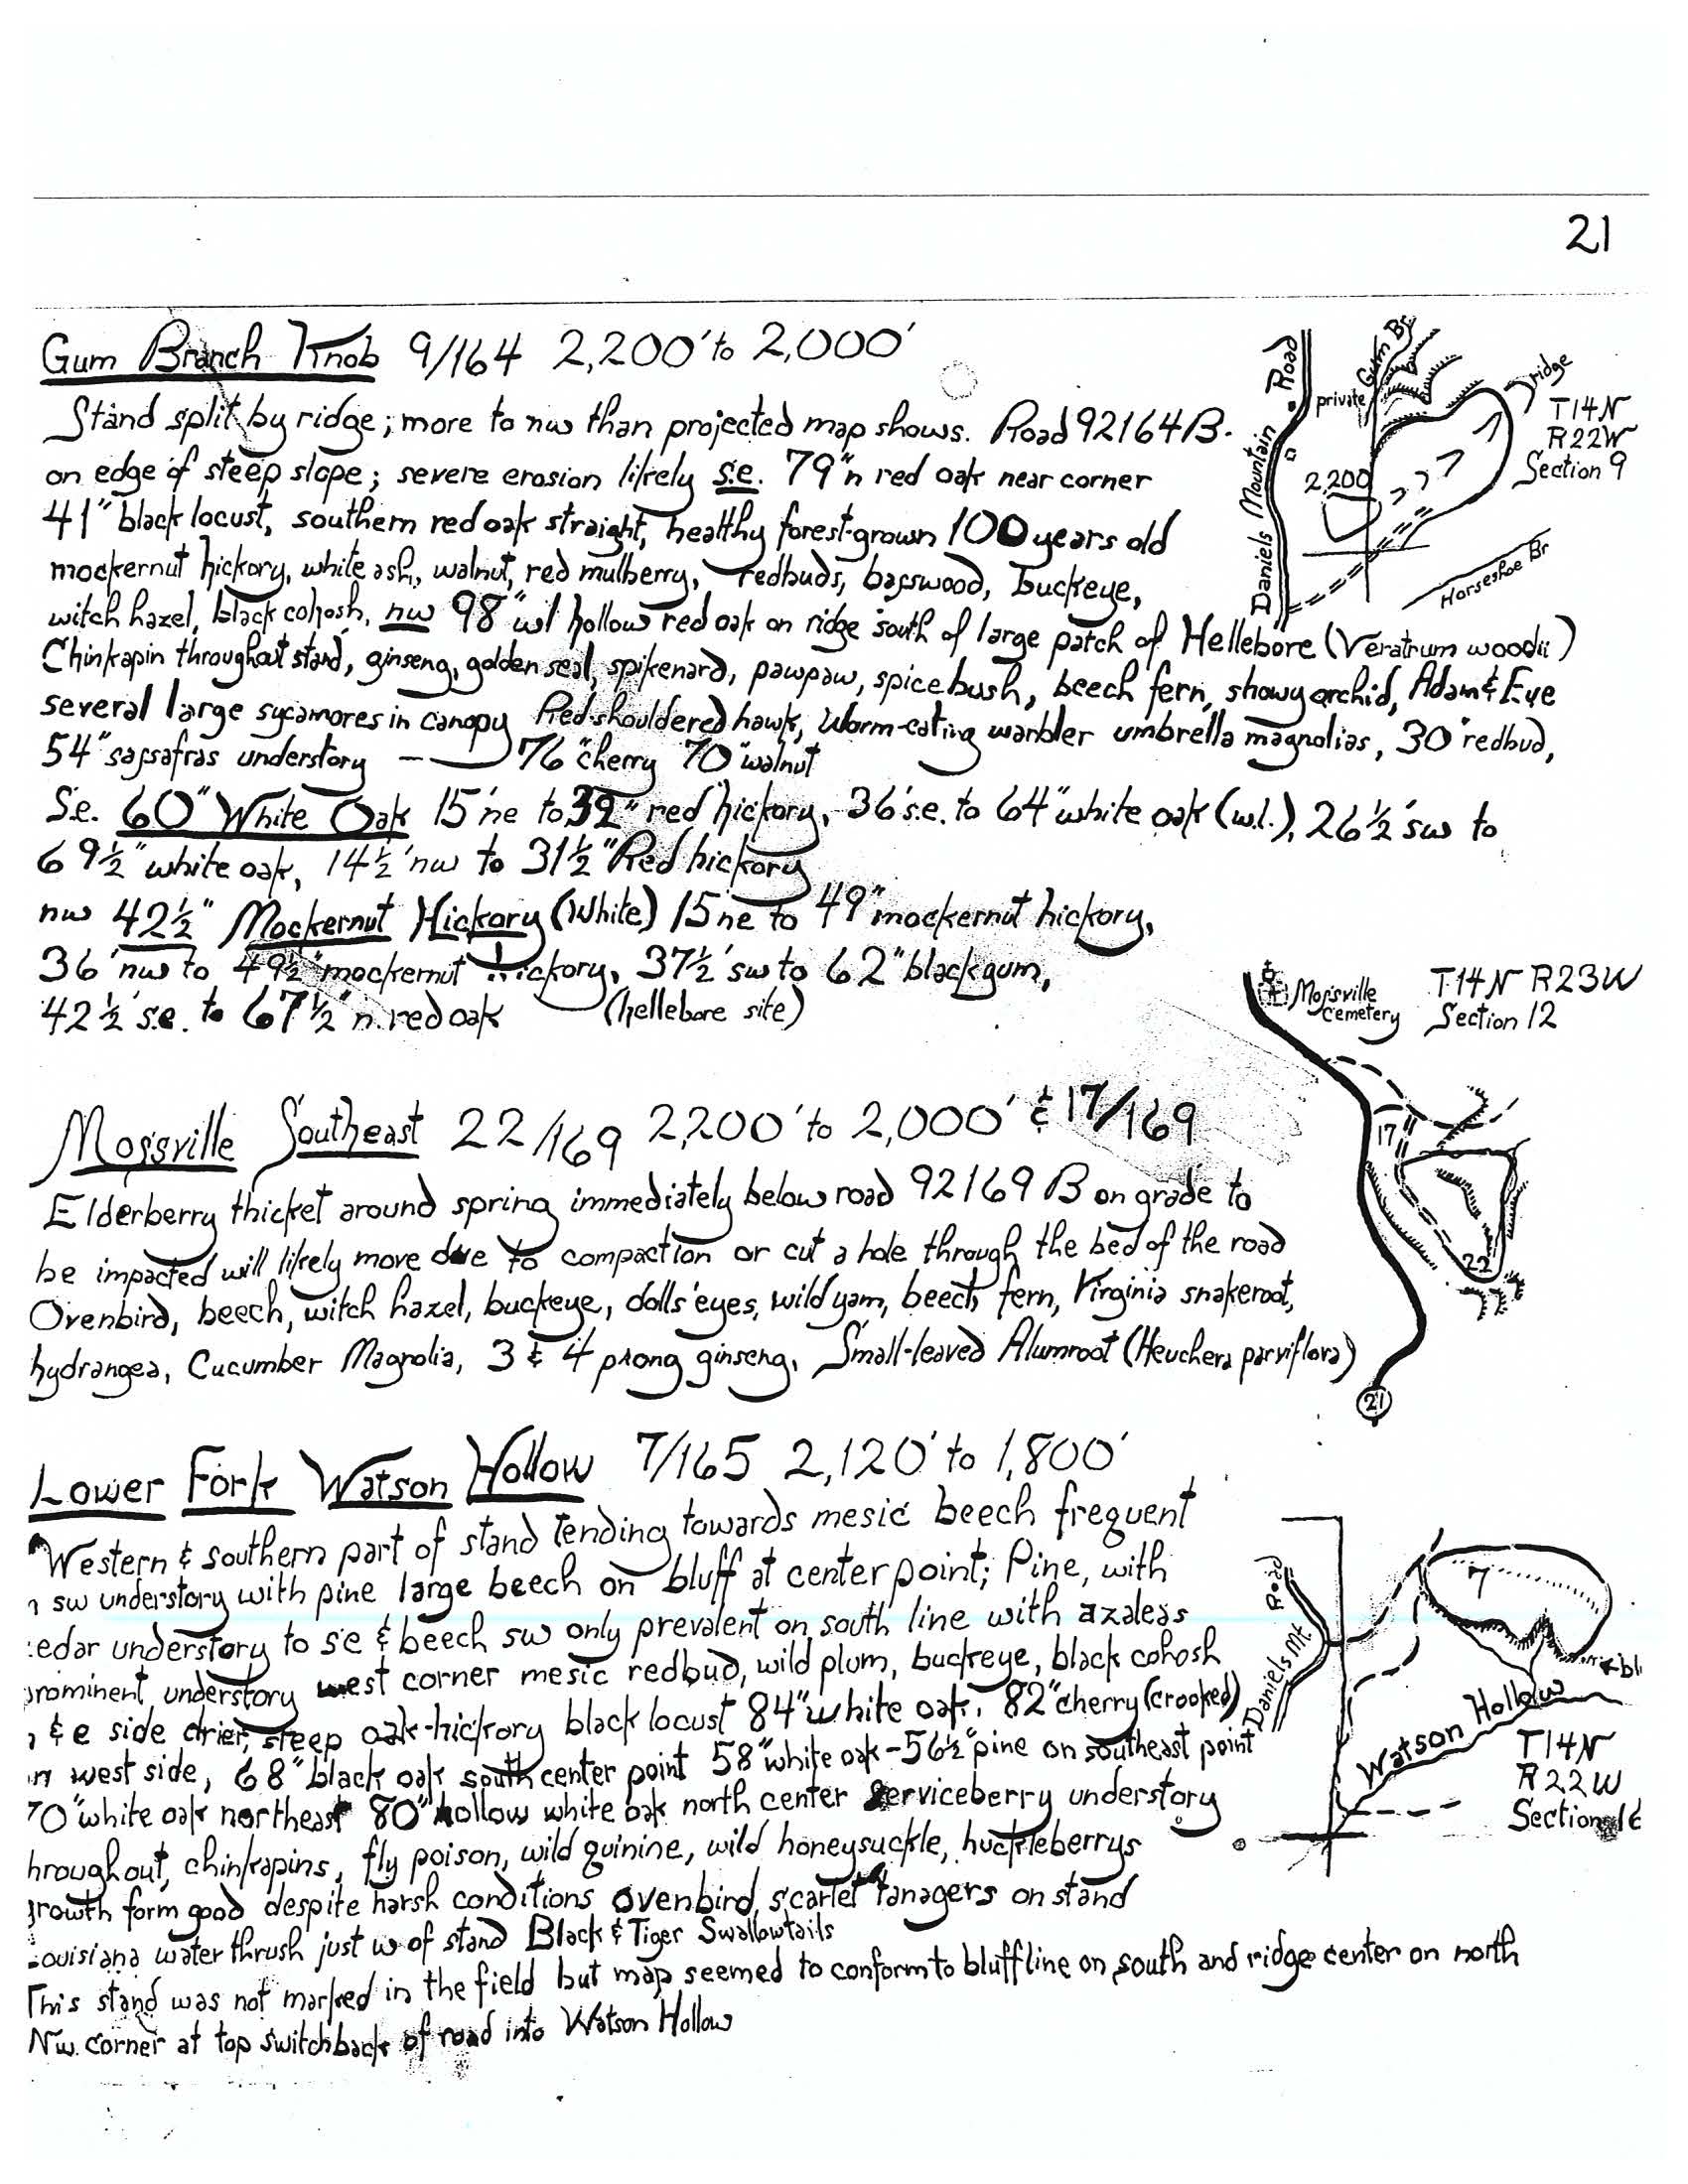 21
Gum Branch Knob 9/164 2,200' to 2,000'
Stand split by ridge; more to nw than projected map shows. Road 92164B.
on edge of steep slope; severe erosion likely s.e. 79" n red oak near corner
41" black locust, southern red oak straight, healthy forest-grown 100 years old
mockernut hickory, white ash, walnut, red mulberry, redbuds, basswood, buckeye,
witch hazel, black cohosh, nw 98" wl hollow red oak on ridge south of large patch of Hellebore (Veratrum woodii)
Chinkapin throughout stand, ginseng, golden seal, spikenard, pawpaw, spice bush, beech fern, showy orchid, Adam & Eve
several large sycamores in canopy Red-shouldered hawk, Worm-eating warbler umbrella magnolias, 30" redbud,
54" sassafras understory — 76" cherry 70" walnut
S.e. 60" White Oak 15' ne to 39" red hickory, 36' s.e. to 64" white oak (w.l.), 26½' sw to
69½" white oak, 14½' nw to 31½" Red hickory
nw 42½" Mockernut Hickory (White) 15' ne to 49" mockernut hickory,
36' nw to 49½" mockernut hickory, 37½' sw to 62" blackgum,
42½' s.e. to 67½" n. red oak (hellebore site)
Daniels Mountain Road
private
Gum Br.
ridge
T14N
R22W
Section 9
2,200
Horseshoe Br
Mossville Southeast 22/169 2,200' to 2,000' & 17/169
Elderberry thicket around spring immediately below road 92169B on grade to
be impacted will likely move due to compaction or cut a hole through the bed of the road
Ovenbird, beech, witch hazel, buckeye, dolls' eyes, wild yam, beech fern, Virginia snakeroot,
hydrangea, Cucumber Magnolia, 3 & 4 prong ginseng, Small-leaved Alumroot (Heuchera parviflora)
Mossville
Cemetery
T14N R23W
Section 12
17
22
21
Lower Fork Watson Hollow 7/165 2,120' to 1,800'
Western & southern part of stand tending towards mesic beech frequent
sw understory with pine large beech on bluff at center point; Pine, with
cedar understory to se & beech sw only prevalent on south line with azaleas
prominent understory west corner mesic redbud, wild plum, buckeye, black cohosh
& e side drier, steep oak-hickory black locust 84" white oak, 82" cherry (crooked)
on west side, 68" black oak south center point 58" white oak - 56½" pine on southeast point
70" white oak northeast 80" hollow white oak north center serviceberry understory
hroughout, chinkapins, fly poison, wild quinine, wild honeysuckle, huckleberrys
growth form good despite harsh conditions ovenbird, scarlet tanagers on stand
Louisiana water thrush just w of stand Black & Tiger Swallowtails
This stand was not marked in the field but map seemed to conform to bluff line on south and ridge center on north
Nw. corner at top switchback of road into Watson Hollow
Daniels Mt. Road
7
bl
Watson Hollow
T14N
R22W
Section 16